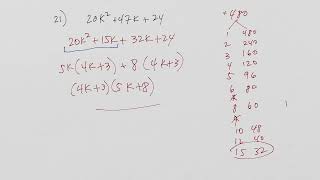 21) 20K² + 47K + 24
20K² + 15K + 32K + 24
5K (4K+3) + 8 (4K+3)
(4K+3) (5K+8)
+ 480
1 480
2 240
3 160
4 120
5 96
6 80
8 60
10 48
12 40
15 32